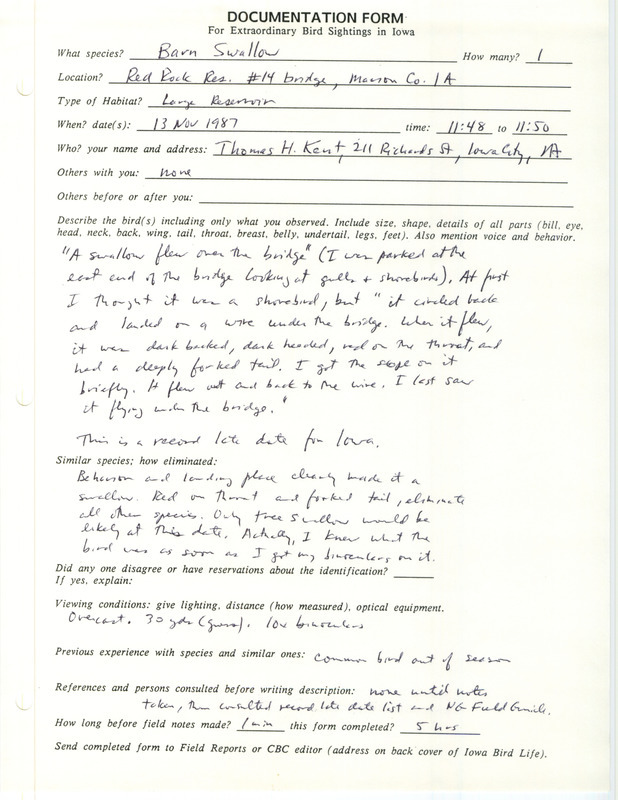 DOCUMENTATION FORM
For Extraordinary Bird Sightings in Iowa
What species? Barn Swallow How many? 1
Location? Red Rock Res. #14 bridge, Marion Co. IA
Type of Habitat? Large Reservoir
When? date(s): 13 Nov 1987 time: 11:48 to 11:50
Who? your name and address: Thomas H. Kent, 211 Richards St, Iowa City, IA
Others with you: none
Others before or after you:
Describe the bird(s) including only what you observed. Include size, shape, details of all parts (bill, eye,
head, neck, back, wing, tail, throat, breast, belly, undertail, legs, feet). Also mention voice and behavior.
"A swallow flew over the bridge" (I was parked at the
east end of the bridge looking at gulls + shorebirds). At first
I thought it was a shorebird, but "it circled back
and landed on a wire under the bridge. When it flew,
it was dark backed, dark headed, red on the throat, and
had a deeply forked tail. I got the scope on it
briefly. It flew out and back to the wire. I last saw
it flying under the bridge."
This is a record late date for Iowa.
Similar species; how eliminated:
Behavior and landing place clearly made it a
swallow. Red on throat and forked tail, eliminate
all other species. Only tree swallow would be
likely at this date. Actually, I knew what the
bird was as soon as I got my binoculars on it.
Did any one disagree or have reservations about the identification?
If yes, explain:
Viewing conditions: give lighting, distance (how measured), optical equipment.
Overcast. 30 yds (guess). 10x binoculars
Previous experience with species and similar ones: common bird out of season
References and persons consulted before writing description: none until notes
taken, then consulted record late date list and NG Field Guide.
How long before field notes made? 1 min this form completed? 5 hrs
Send completed form to Field Reports or CBC editor (address on back cover of Iowa Bird Life).